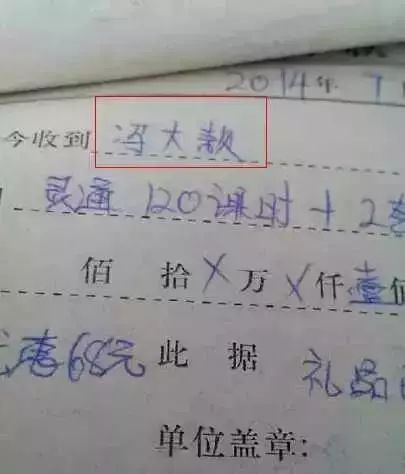 2014年 7
今收到 冯大款
灵通 120课时+2套
佰 拾 X 万 X 仟 壹佰
惠68元 此 据 礼品
单位盖章: